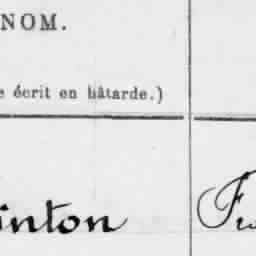 NOM.
écrit en bâtarde.)
inton Fr